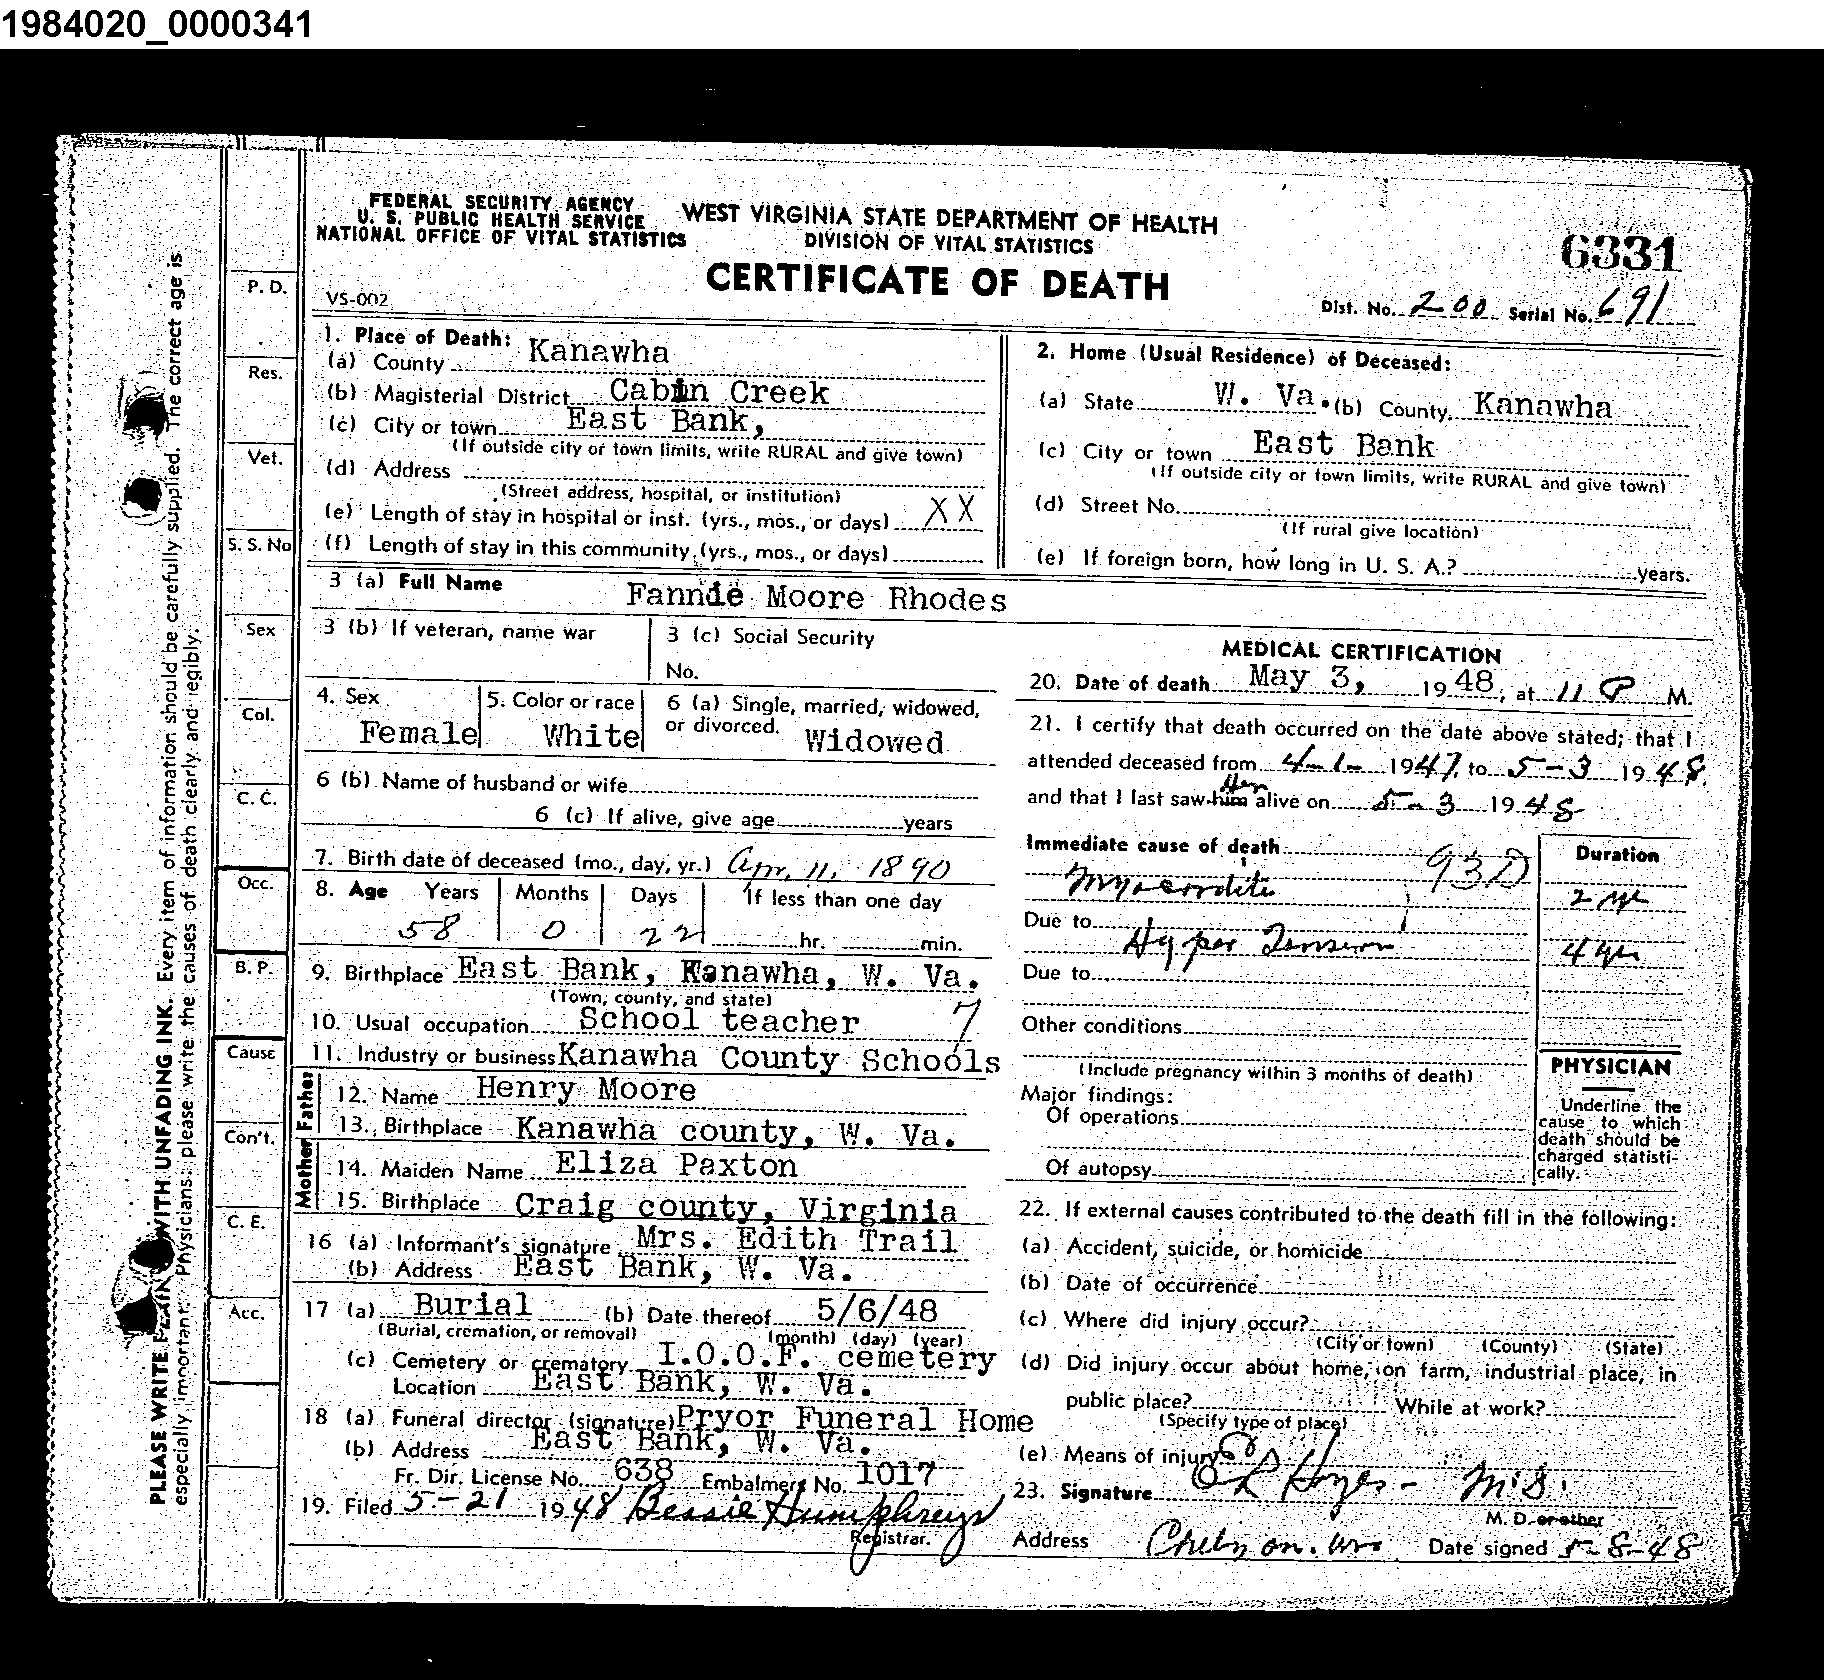 1984020_0000341
FEDERAL SECURITY AGENCY
U. S. PUBLIC HEALTH SERVICE
NATIONAL OFFICE OF VITAL STATISTICS
WEST VIRGINIA STATE DEPARTMENT OF HEALTH
DIVISION OF VITAL STATISTICS
CERTIFICATE OF DEATH
6331
VS-002
Dist. No. 200 Serial No. 691
PLEASE WRITE PLAINLY WITH UNFADING INK. Every item of information should be carefully supplied. The correct age is
especially important. Physicians: please write the causes of death clearly and legibly.
P. D.
Res.
Vet.
S. S. No
Sex
Col.
C. C.
Occ.
B. P.
Cause
Con't.
C. E.
Acc.
1. Place of Death:
(a) County Kanawha
(b) Magisterial District Cabin Creek
(c) City or town East Bank,
(If outside city or town limits, write RURAL and give town)
(d) Address
(Street address, hospital, or institution)
(e) Length of stay in hospital or inst. (yrs., mos., or days) XX
(f) Length of stay in this community (yrs., mos., or days)
2. Home (Usual Residence) of Deceased:
(a) State W. Va. (b) County Kanawha
(c) City or town East Bank
(If outside city or town limits, write RURAL and give town)
(d) Street No.
(If rural give location)
(e) If foreign born, how long in U. S. A.? years.
3 (a) Full Name Fannie Moore Rhodes
3 (b) If veteran, name war
3 (c) Social Security
No.
4. Sex Female
5. Color or race White
6 (a) Single, married, widowed,
or divorced. Widowed
6 (b) Name of husband or wife
6 (c) If alive, give age years
7. Birth date of deceased (mo., day, yr.) Apr. 11, 1890
8. Age Years Months Days If less than one day
58 0 22 hr. min.
9. Birthplace East Bank, Kanawha, W. Va.
(Town, county, and state)
10. Usual occupation School teacher 7
11. Industry or business Kanawha County Schools
Father
12. Name Henry Moore
13. Birthplace Kanawha county, W. Va.
Mother
14. Maiden Name Eliza Paxton
15. Birthplace Craig county, Virginia
16 (a) Informant's signature Mrs. Edith Trail
(b) Address East Bank, W. Va.
17 (a) Burial (b) Date thereof 5/6/48
(Burial, cremation, or removal) (month) (day) (year)
(c) Cemetery or crematory I.O.O.F. cemetery
Location East Bank, W. Va.
18 (a) Funeral director (signature) Pryor Funeral Home
(b) Address East Bank, W. Va.
Fr. Dir. License No. 638 Embalmers No. 1017
19. Filed 5-21 1948 Bessie Humphreys
Registrar.
MEDICAL CERTIFICATION
20. Date of death May 3, 1948, at 11 P M.
21. I certify that death occurred on the date above stated; that I
attended deceased from 4-1- 1947, to 5-3 1948.
Her
and that I last saw him alive on 5-3 1948
Immediate cause of death 93D
Duration
Myocarditis 2 yr
Due to
Hyper Tension 4 yr
Due to
Other conditions
(Include pregnancy within 3 months of death)
Major findings:
Of operations
Of autopsy
PHYSICIAN
Underline the
cause to which
death should be
charged statisti-
cally.
22. If external causes contributed to the death fill in the following:
(a) Accident, suicide, or homicide
(b) Date of occurrence
(c) Where did injury occur?
(City or town) (County) (State)
(d) Did injury occur about home, on farm, industrial place, in
public place? While at work?
(Specify type of place)
(e) Means of injury
23. Signature M.D.
M. D. or other
Address Chelyan. Date signed 5-8-48